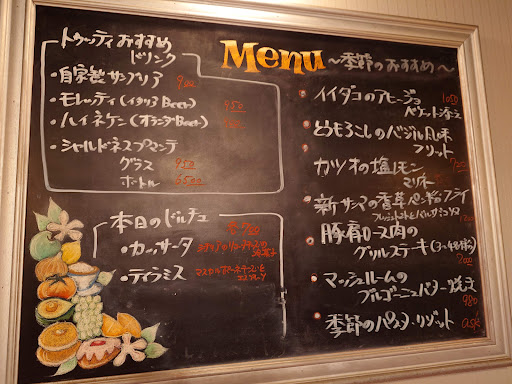 トゥッティおすすめ
ドリンク
・自家製サングリア 900
・モレッティ(イタリアBeer) 950
・ハイネケン(オランダBeer)
・シャルドネスプマンテ
グラス 950
ボトル 6500
本日のドルチェ
各700
・カッサータ
・ティラミス
Menu ~季節のおすすめ~
・イイダコのアヒージョ 1050
バケット添え
・とうもろこしのバジル風味
フリット
・カツオの塩レモン
マリネ
・新サンマの香草パン粉フライ
・豚肩ロース肉の
グリルステーキ
2000
・マッシュルームの
ブルゴーニュバター焼き
980
・季節のパスタ・リゾット ask